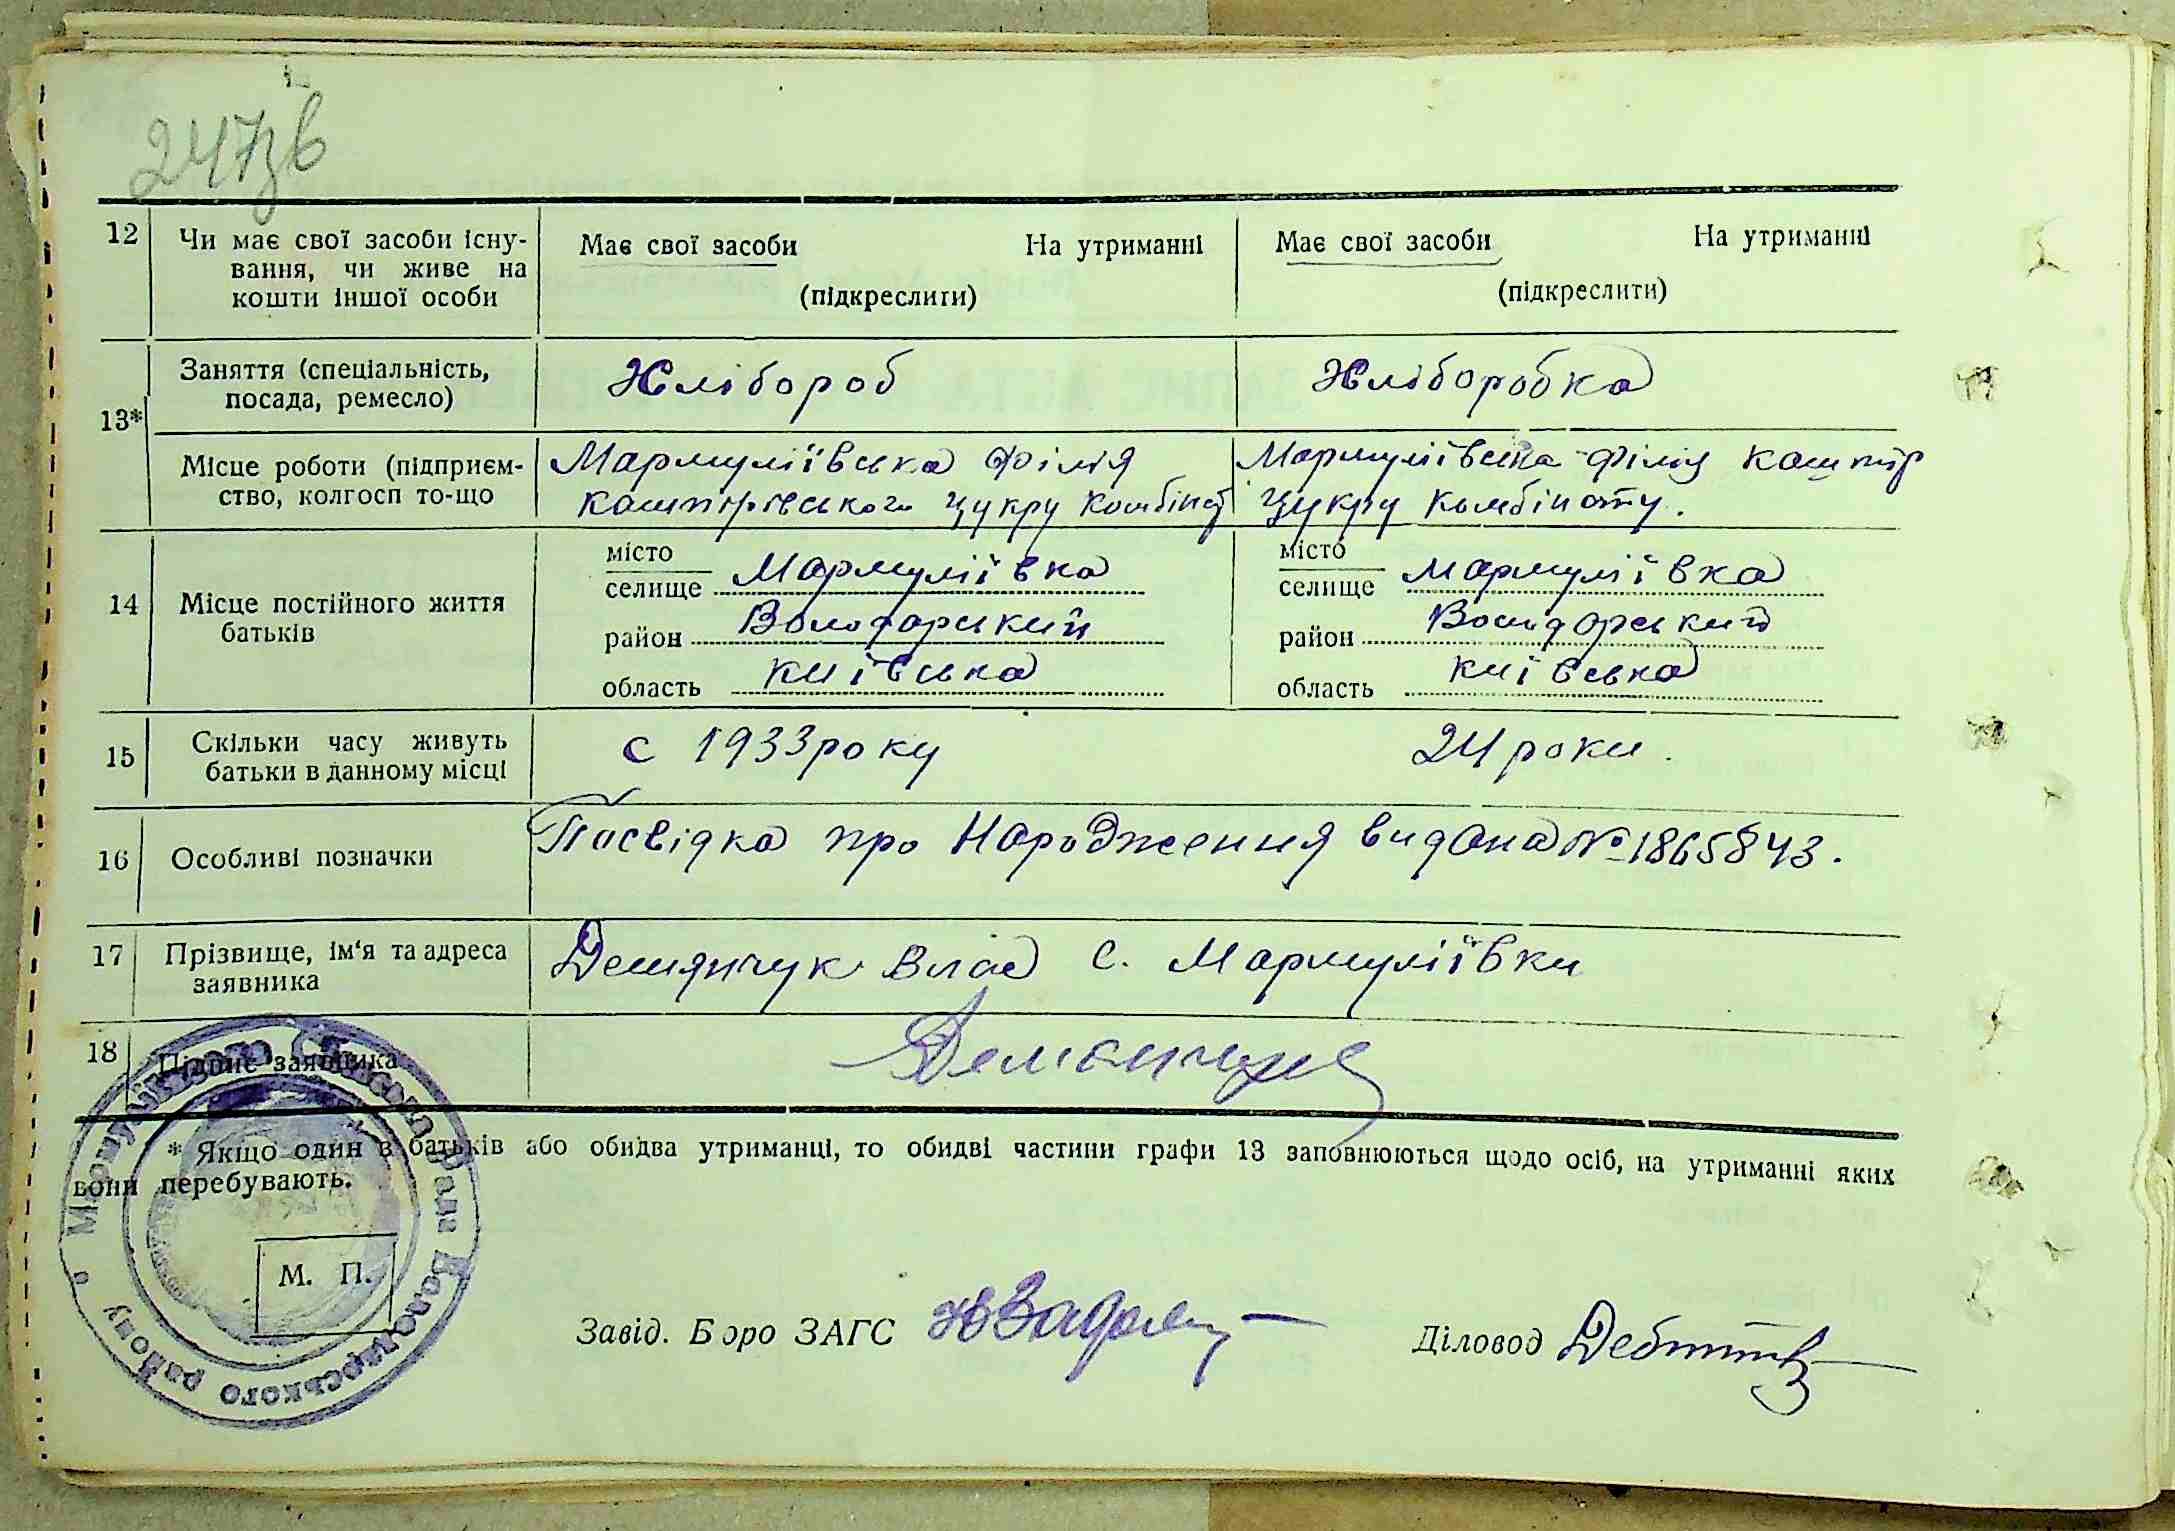 247зв
12 Чи має свої засоби існу-
вання, чи живе на
кошти іншої особи
Має свої засоби На утриманні
(підкреслити)
Має свої засоби На утриманні
(підкреслити)
13*
Заняття (спеціальність,
посада, ремесло)
Хлібороб
Хліборобка
Місце роботи (підприєм-
ство, колгосп то-що
Мармуліївська філія
Кашпірівського цукру комбінат
Мармуліївська філія Кашпір
цукру комбінату.
14 Місце постійного життя
батьків
місто
селище Мармуліївка
район Володарський
область київська
місто
селище Мармуліївка
район Володарський
область київська
15 Скільки часу живуть
батьки в данному місці
с 1933 року
24 роки.
16 Особливі позначки
Посвідка про Народження видана № 1865843.
17 Прізвище, ім'я та адреса
заявника
Демянчук Влад с. Мармуліївки
18 Підпис заявника
Демянчук
* Якщо один з батьків або обидва утриманці, то обидві частини графи 13 заповнюються щодо осіб, на утриманні яких
вони перебувають.
Мармуліївського Сільської Ради Володарського району
М. П.
Завід. Бюро ЗАГС
Діловод